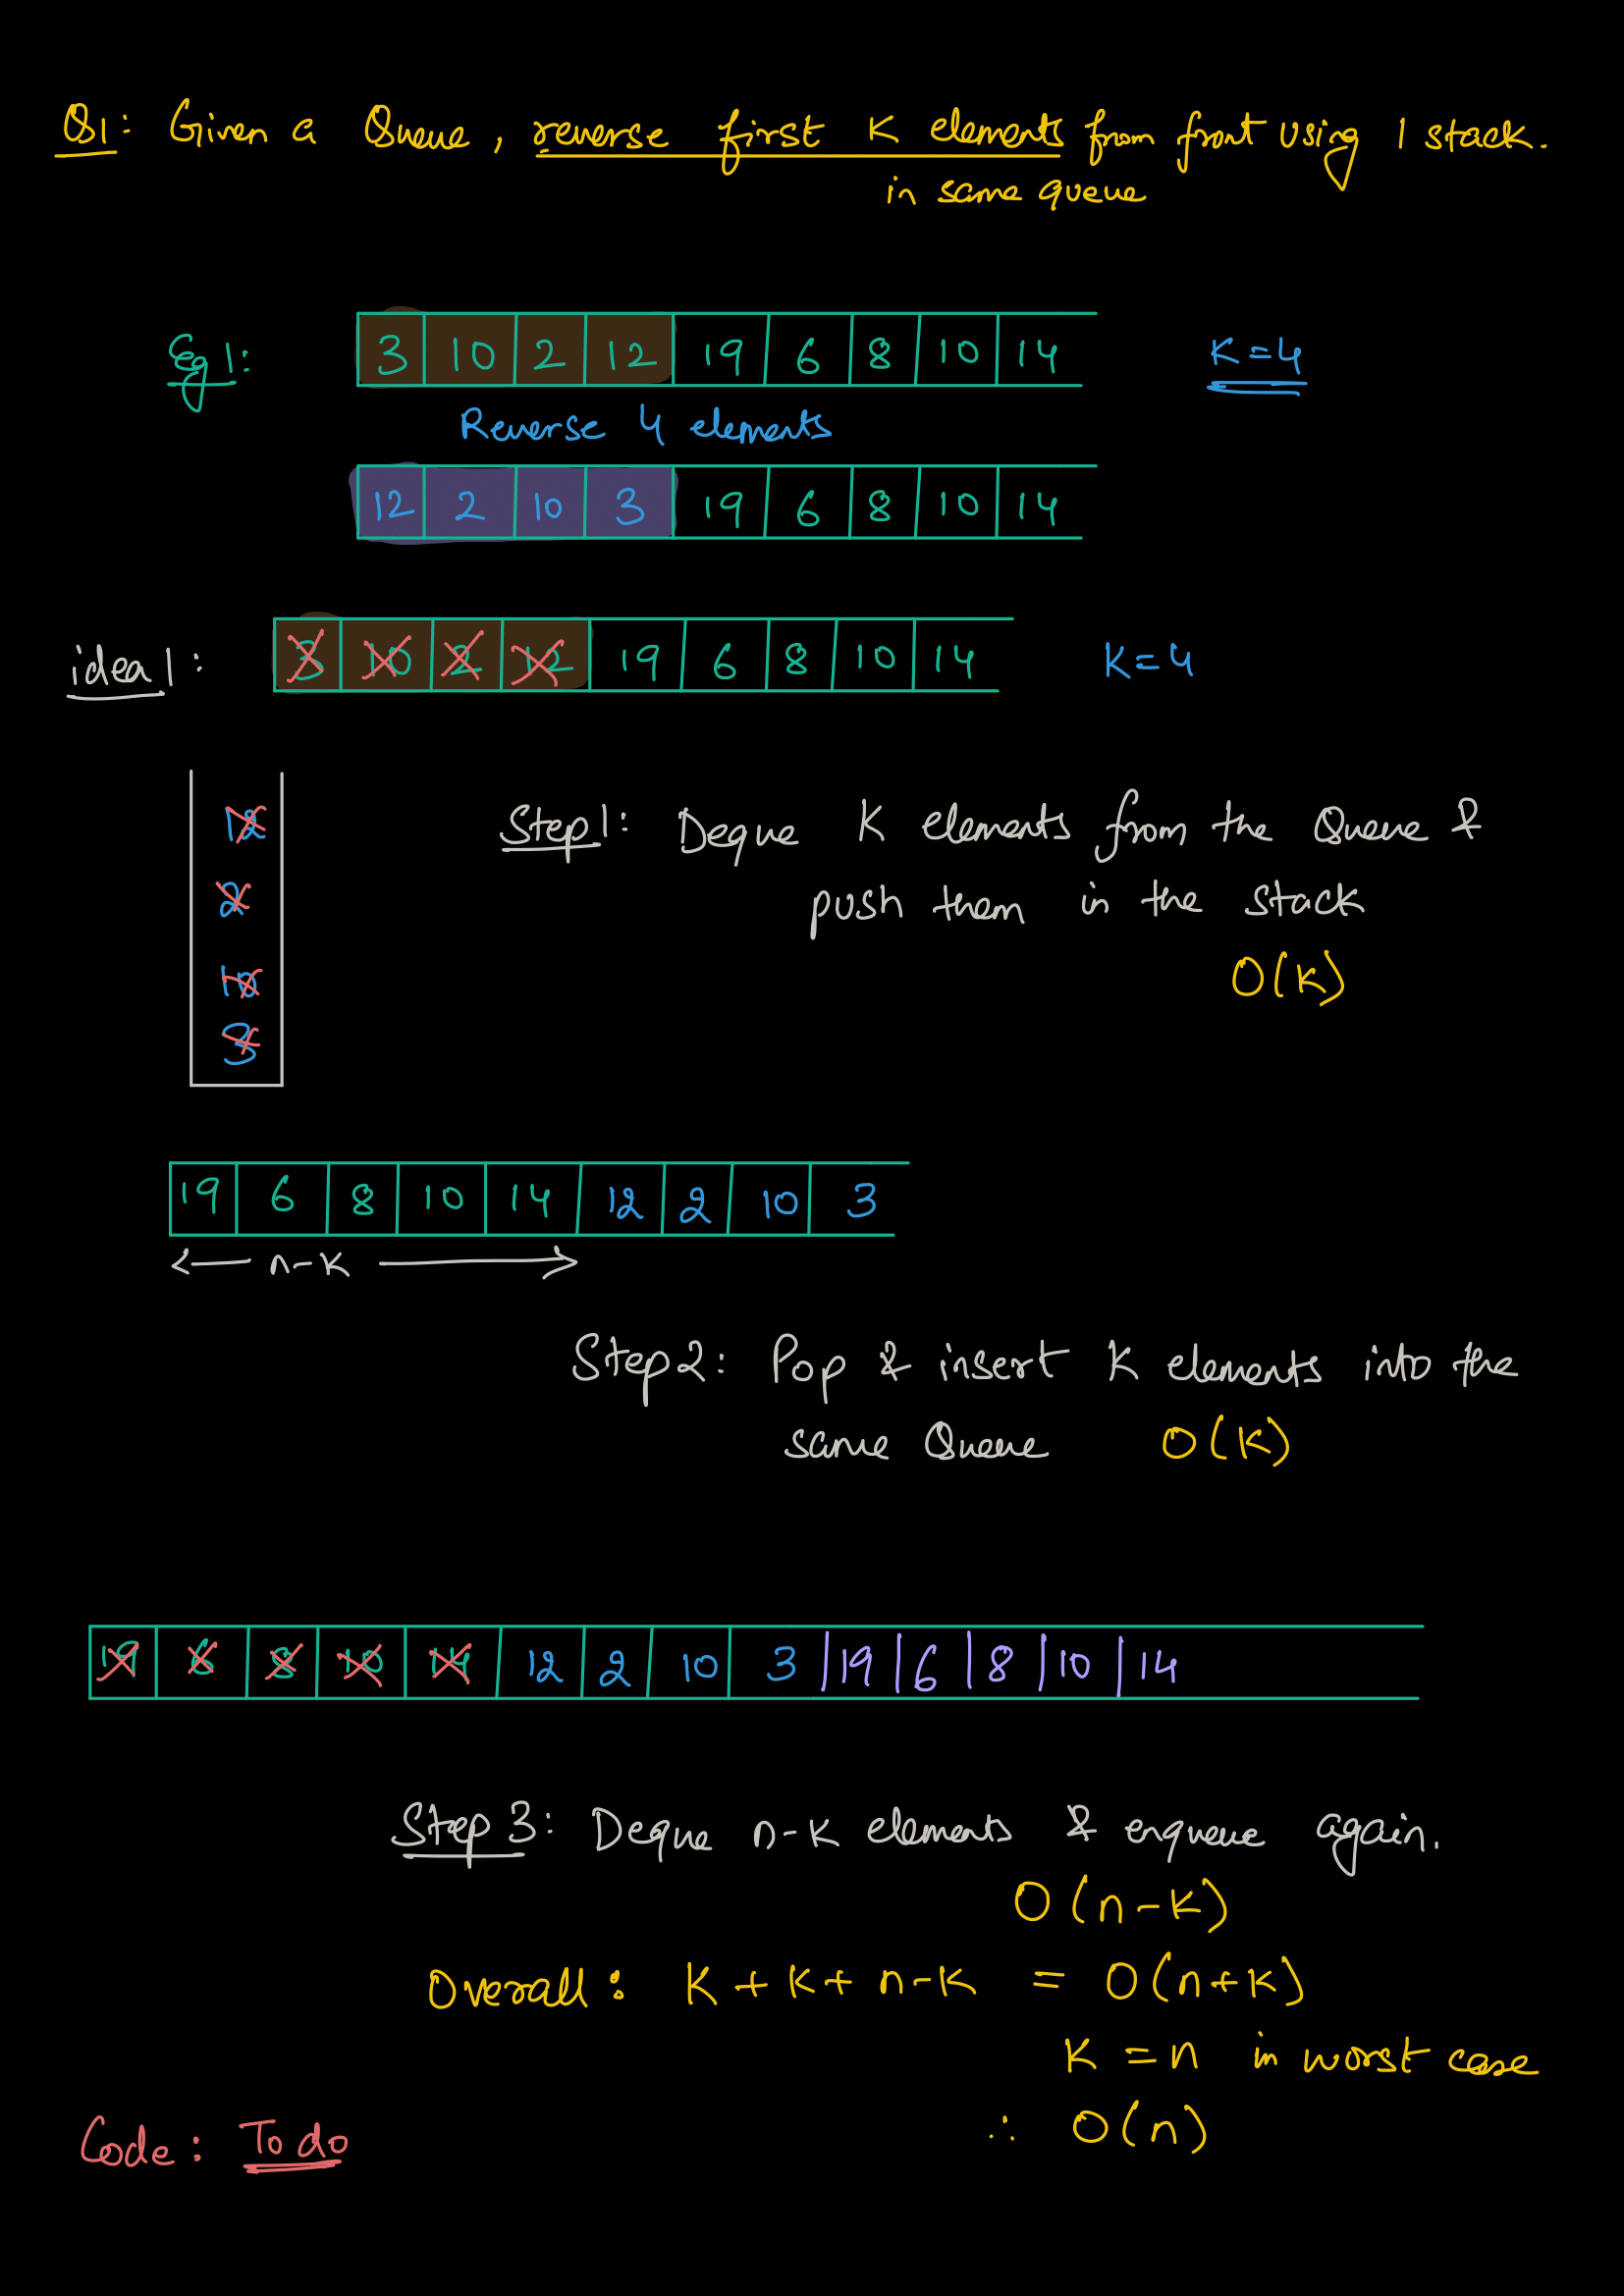 Q1: Given a Queue, reverse first K elements from front using 1 stack.
in same queue
Eg 1: 3 10 2 12 19 6 8 10 14 K=4
Reverse 4 elements
12 2 10 3 19 6 8 10 14
idea 1: 3 10 2 12 19 6 8 10 14 K=4
12
2
10
3
Step1: Deque K elements from the Queue &
push them in the stack
O(K)
19 6 8 10 14 12 2 10 3
← n-K →
Step2: Pop & insert K elements into the
same Queue O(K)
19 6 8 10 14 12 2 10 3 19 6 8 10 14
Step 3: Deque n-K elements & enqueue again.
O(n-K)
Overall: K + K + n-K = O(n+K)
K = n in worst case
∴ O(n)
Code: To do